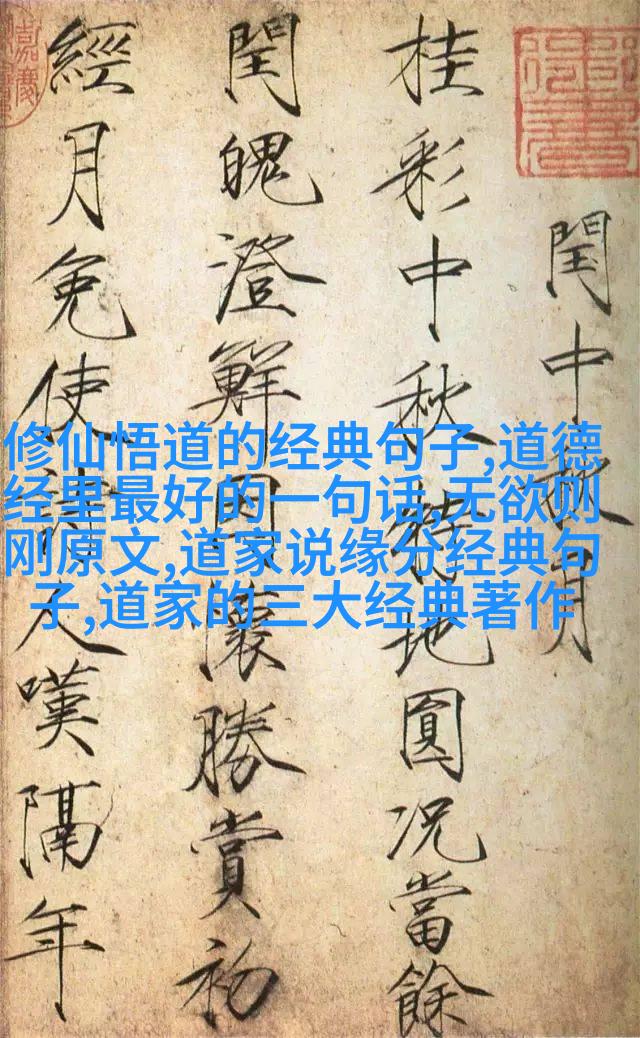 閏中秋月
桂彩中秋特地圓況當餘
閏魄澄鮮因懷勝賞初
經月免使詩人嘆隔年
修仙悟道的经典句子,道德
经里最好的一句话,无欲则
刚原文,道家说缘分经典句
子,道家的三大经典著作